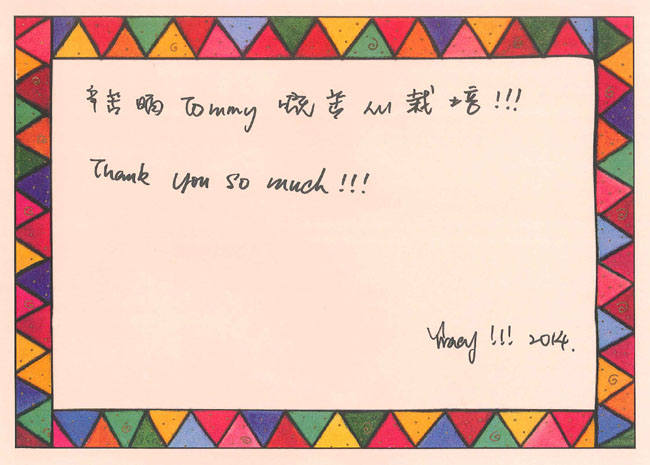 辛苦晒 Tommy 咁苦心栽培!!!
Thank you so much!!!
Tracy !!! 2014.